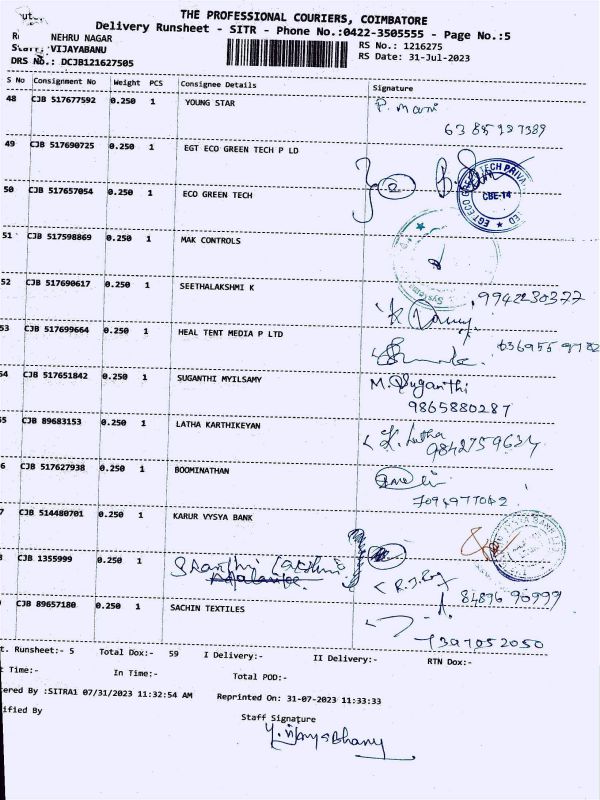 THE PROFESSIONAL COURIERS, COIMBATORE
Delivery Runsheet - SITR - Phone No.:0422-3505555 - Page No.:5
NEHRU NAGAR
RS No.: 1216275
VIJAYABANU
RS Date: 31-Jul-2023
DRS No.: DCJB121627505
S No Consignment No Weight PCS Consignee Details Signature
48 CJB 517677592 0.250 1 YOUNG STAR P. Mani
49 CJB 517690725 0.250 1 EGT ECO GREEN TECH P LD
50 CJB 517657054 0.250 1 ECO GREEN TECH
CBE-14
51 CJB 517598869 0.250 1 MAK CONTROLS
52 CJB 517690617 0.250 1 SEETHALAKSHMI K 9942230377
53 CJB 517699664 0.250 1 HEAL TENT MEDIA P LTD
54 CJB 517651842 0.250 1 SUGANTHI MYILSAMY M. Suganthi
9865880287
55 CJB 89683153 0.250 1 LATHA KARTHIKEYAN K. Latha
9842759634
6 CJB 517627938 0.250 1 BOOMINATHAN
7094977042
7 CJB 514480701 0.250 1 KARUR VYSYA BANK
CJB 1355999 0.250 1
84896 90999
CJB 89657180 0.250 1 SACHIN TEXTILES
7397052050
t. Runsheet:- 5 Total Dox:- 59 I Delivery:- II Delivery:- RTN Dox:-
t Time:- In Time:- Total POD:-
ered By :SITRA1 07/31/2023 11:32:54 AM Reprinted On: 31-07-2023 11:33:33
ified By
Staff Signature
Y. Vijayabhany